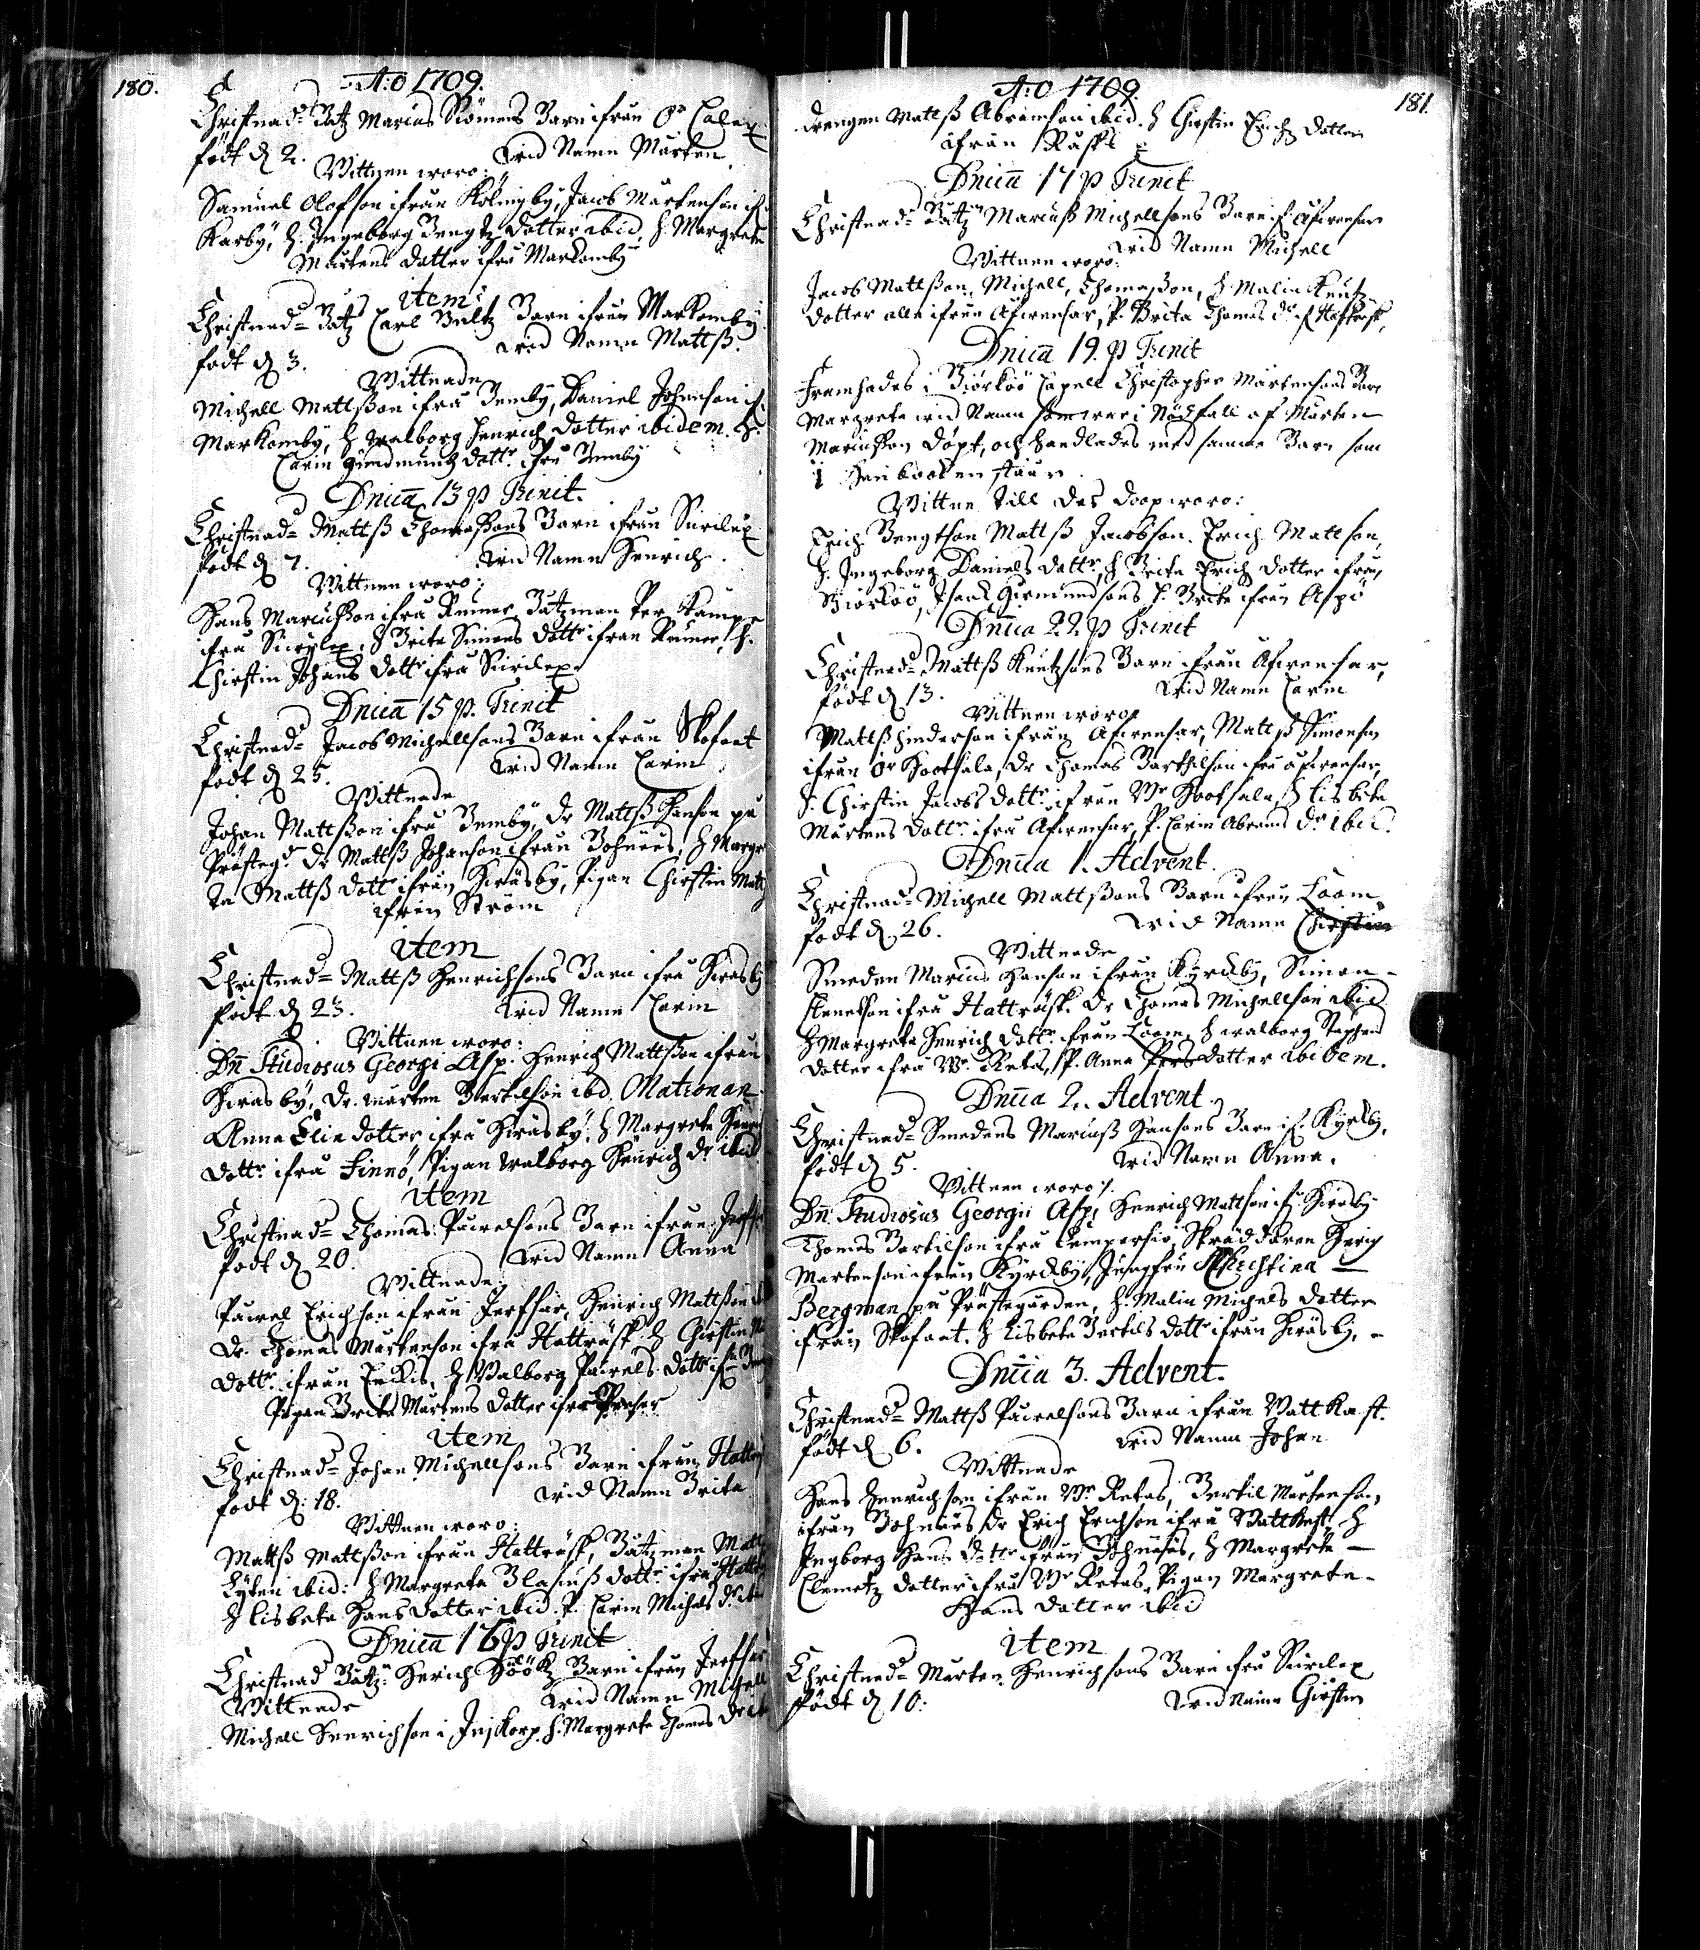 180.
A:o 1709.
Christnad= Båtz Marcus Biömens Barn ifrån Ör Calax
födt d 2. wid Namn Mårten
Wittnen woro:
Samuel Olofson ifrån Kölmyby, Jacob Mårtenson if.
Karby, H. Ingeborg Bengtz dotter ibid, H. Margreta
Mårtens dotter ifrå Markomby
item:
Christnad= Båtz Carl Bultz Barn ifrån Markomby
födt d 3. wid Namn Mattß.
Wittnade
Michell Mattßon ifrå Bemby, Daniel Johanson if.
Markomby, H walborg Henrich dotter ibidem. H.
Carin gudmundz dottr. ifrå Bemby
Dnica 13 p Trinit.
Christnad= Mattß Thomaßons Barn ifrån Surilax
födt d 7. wid Namn Henrich
Wittnen woro:
Hans Marcußon ifrå Rumar, Båtzman Per Kamp
ifrå Surilax, H Brita Simons dottr ifran Rumar, H.
Chirstin Johans dottr ifrå Surilax
Dnica 15 p. Trinit
Christnad= Jacob Michellsons Barn ifrån Skofant
födt d 25. wid Namn Carin
Wittnade
Johan Mattßon ifrå Bemby, Dr Mattß Hanson på
Prästegd. Dr Mattß Johanson ifrån Bohnäs, H Margre
ta Mattß dottr ifrån Hiräsby, Pigan Chirstin Mattz
ifrån Ström
item
Christnad= Mattß Henrichsons Barn ifrå Hirasby
födt d 23. wid Namn Carin
Wittnen woro:
Dn. Studiosus Georgi Asp. Henrich Mattßon ifrån
Hiräsby, Dr. mårten Bertilson ibd. Matronan
Anna Elie dotter ifrå Hiräsby, H Margreta Henr
dottr ifrå Finnö, Pigan walborg Henrich dr ibid
item
Christnad= Thomas Påwelsons Barn ifrån Jerfs
födt d 20. wid Namn Anna
Wittnade
Påwel Erichson ifrån Jerfsär, Henrich Mattßon
Dr. Thomas Mårtenson ifrå Hatträsk H Chirstin
dottr. ifrån Erikis, H Walborg Påwels dottr if
Pigan Brita Mårtens dotter ifrå
item
Christnad= Johan Michellsons Barn ifrån Hattr
födt d: 18. wid Namn Brita
Wittnen woro:
Mattß Mattßon ifrån Hatträsk, Båtzman Matt
Lyten ibid: H Margreta Blasiuß dottr ifrå Hattr
H Lisbeta Hansdotter ibid. P. Carin Michels dr ibid
Dnica 16 p Trinit
Christnad Båtz: Henrich Höök Barn ifrån Jerfsär
Wittnade wid Namn Michell
Michell Henrichson i H. Margreta Thomas dr ib
181.
A:o 1709.
drengen Mattß Abramson ibid. H Chirstin Erichz dotter
ifrån Räfsk
Dnica 17 p Trinit
Christnad= Båtz Marcuß Michellsons Barn if. Afwensar
wid Namn Michell
Wittnen woro:
Jacob Mattßon, Michell, Thomaßon, H. Malin Knutz
dotter alla ifrån Afwensar, P. Brita Thomas dr if Hatträsk,
Dnica 19. p Trinit
Framhades i Biörköö Capell Christopher Mårtensons Barn
Margreta wid Namn som war i Nödfall af Mårten
Marcußon döpt, och handlades med samma Barn som
i Hanbooken står
Wittne till des doop woro:
Erich Bengtson Mattß Jacobson. Erich Mattson,
H. Ingeborg Daniels dottr, H Brita Erich dotter ifrån
Biörköö, Isaac Girmundsons H Brita ifrån Aspö
Dnica 22 p Trinit
Christnad= Mattß Knutzsons Barn ifrån Afwensar,
födt d 13. wid Namn Carin
Wittnen woro
Mattß Anderson ifrån Afwensar, Mattß Simonson
ifrån Ör Hootsala, Dr Thomas Barthilson ifrå afwensar,
H. Chirstin Jacobs dottr. ifrån Nr Hootsala, H Lisbeta
Mårtens dottr. ifrå Afwensar, P. Carin Abrams dr ibid.
Dnica 1. Advent.
Christnad= Michell Mattßons Barn ifrån Loom.
födt d. 26. wid Namn Chirstin
Wittnade
Smeden Marcus Hanson ifrån Kyrckby, Simon
ifrå Hatträsk. Dr Thomas Michellson ibid
H Margreta Henrich dottr. från Loom, H walborg Stephens
dotter ifrå Wr. Retas, P. Anna Pers dotter ibidem.
Dnica 2. Advent.
Christnad= Smedens Marcuß Hansons Barn if. Kyrkby,
födt d 5. wid Namn Anna.
Wittnen woro:
Dn: Studiosus Georgii Asp, Henrich Mattson if. Hiräsby
Thomas Bertilson ifrå Kempersiö, Skräddaren Henrich
Martenson ifrån Kyrckby, Jungfru Christina
Bergman på Prästegården, H. Malin Michels dotter
ifrån Skofant. H Lisbeta Bertils dottr ifrån Hiräsby,
Dnica 3. Advent.
Christnad= Mattß Påwelsons Barn ifrån Wattkast.
födt d 6. wid Namn Johan
Wittnade
Hans Henrichson ifrån Wr Retas, Bertil Mårtenson,
ifrån Bohnäs Dr Erich Erichson ifrå Wattkast, H
Ingborg Hans dottr ifrån Bohnäs, H Margreta
Clemetz dotter ifrå Wr Retas, Pigan Margreta
Hans dotter ibid
item
Christnad= Mårten Henrichsons Barn ifrå Surilax
födt d 10: wid Namn Chirstin